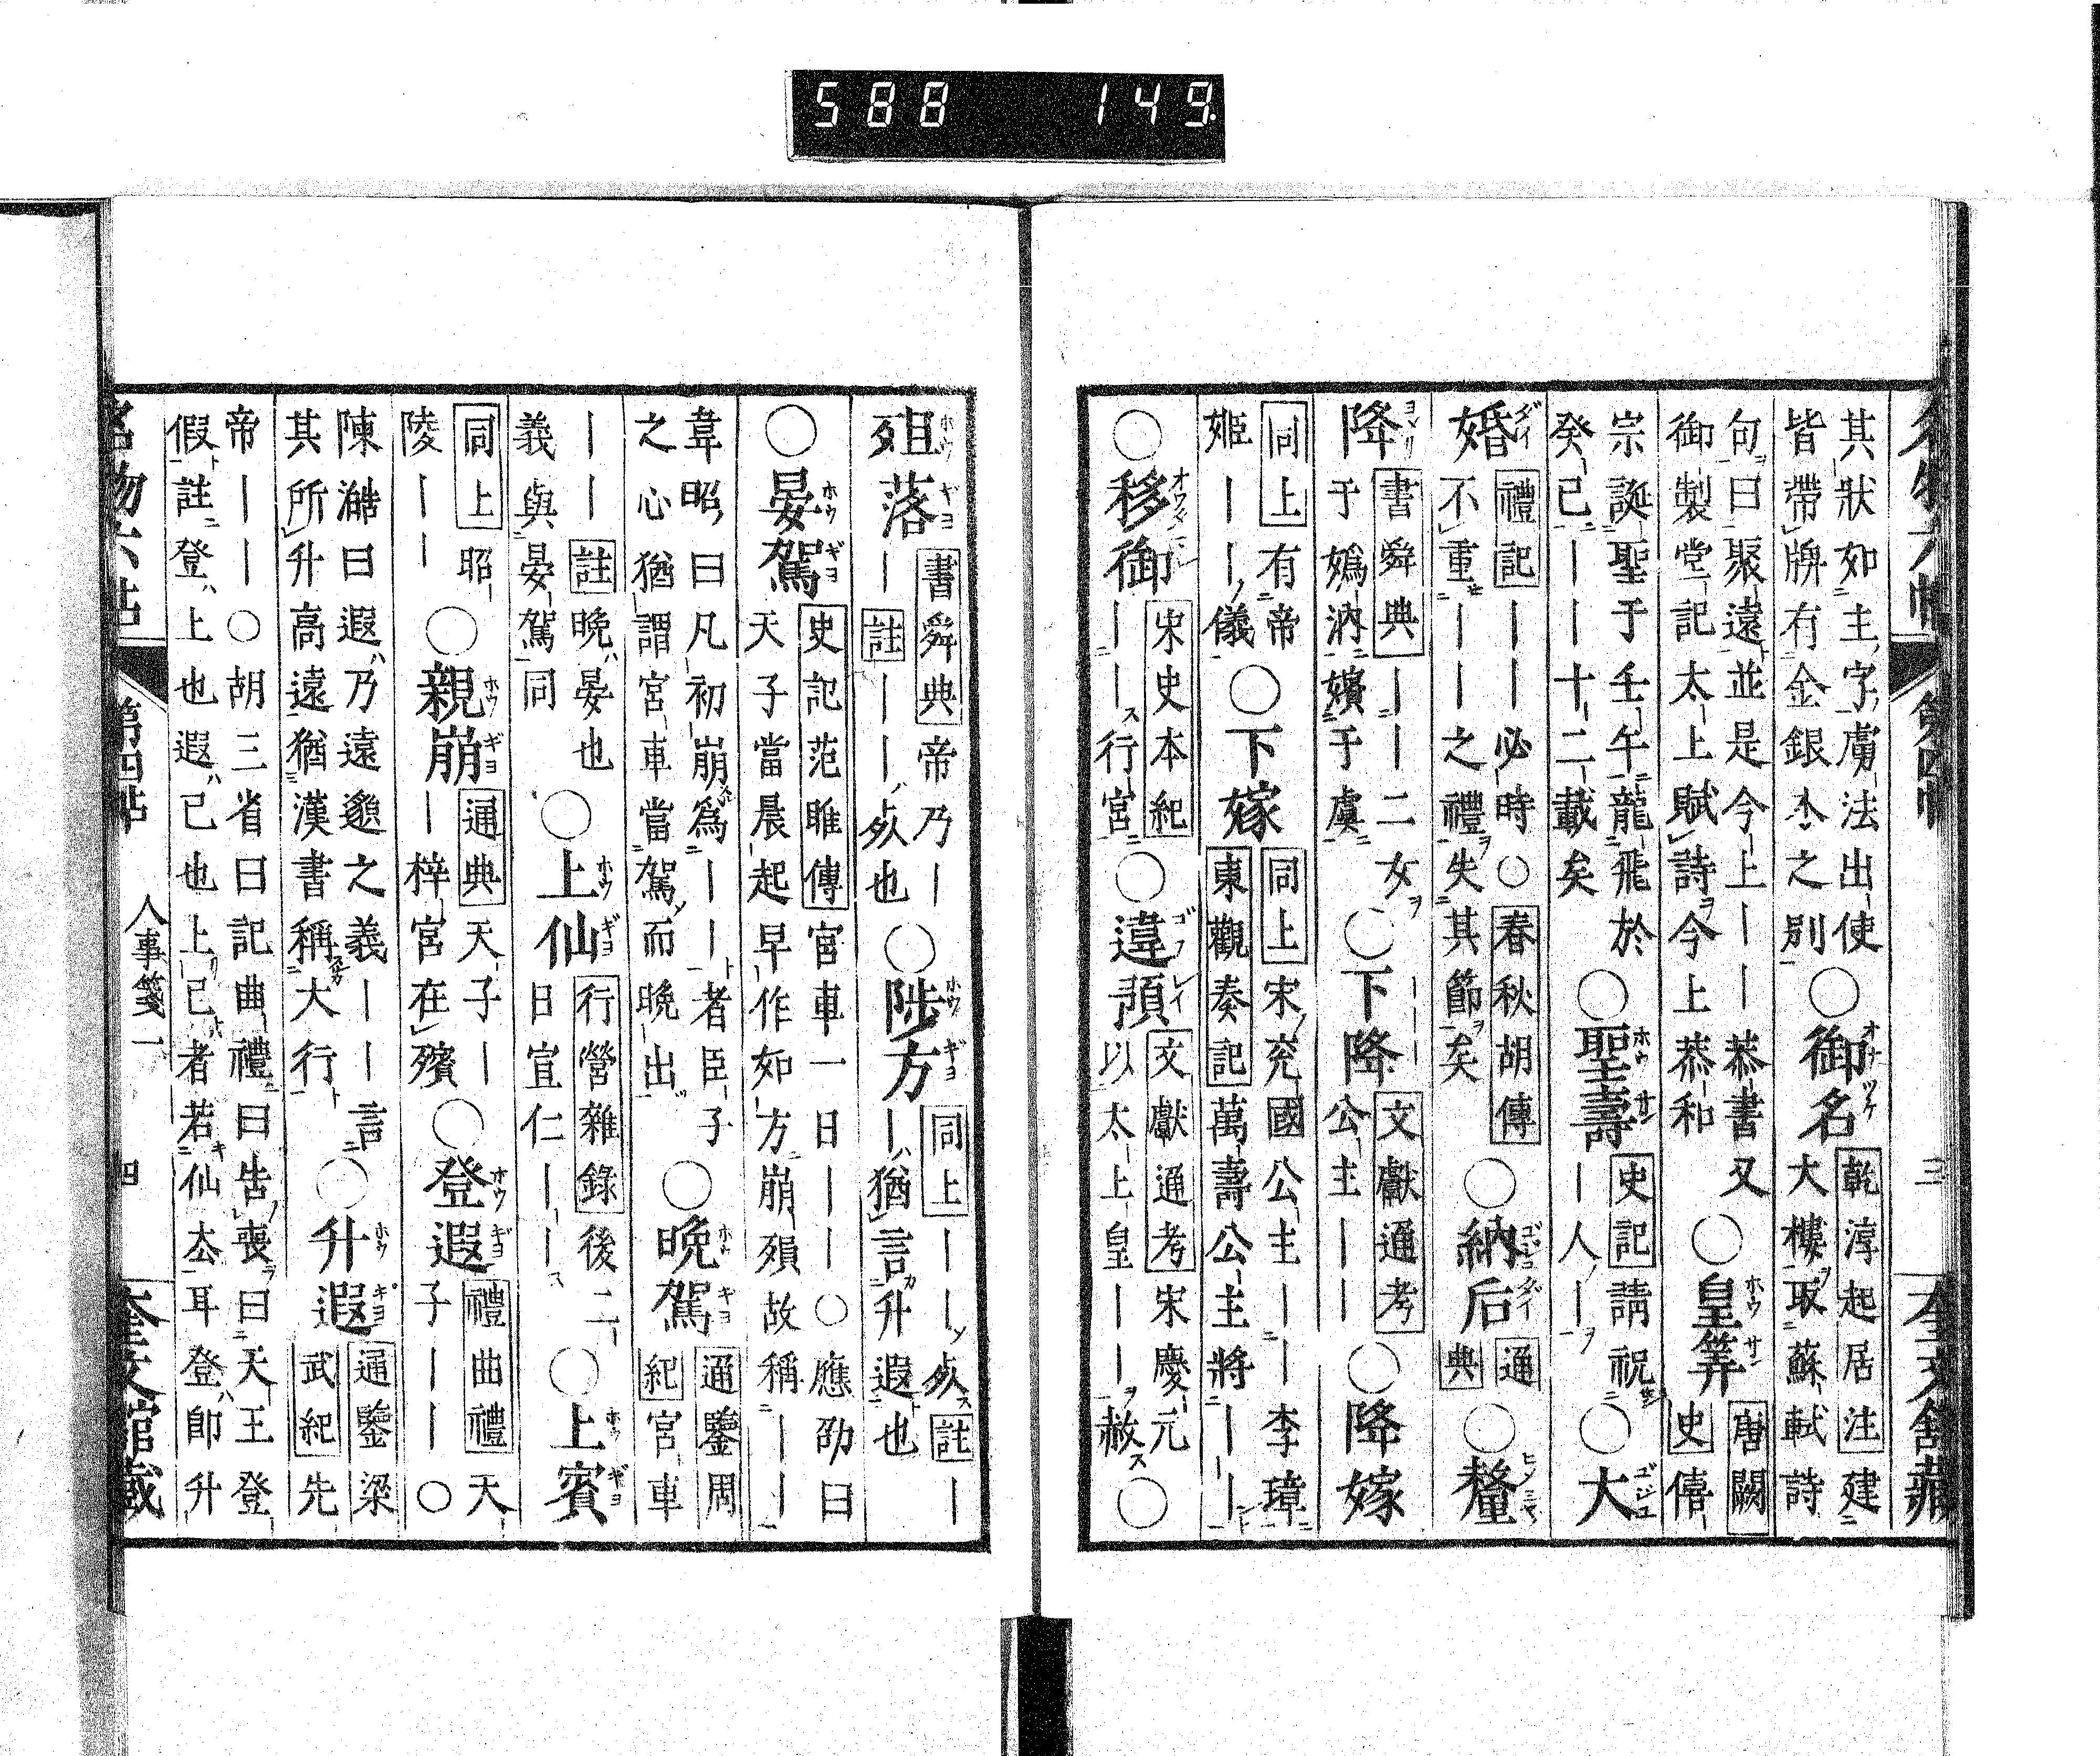 588 149.
其狀如主字虜法出使
皆帶牌有金銀木之別
○御名
乾淳起居注建
大樓取蘇軾詩
句曰聚遠並是今上――恭書又
御製堂記太上賦詩今上恭和
○皇筭
唐闕
史僖
宗誕聖于壬午龍飛於
癸巳――十二載矣
○聖壽
史記請祝
―人―
○大
婚
禮記―――必時○春秋胡傳
不重――之禮失其節矣
○納后
通
典
○釐
降
書舜典――二女
于嬀汭嬪于虞
○下降
文獻通考
公主――
○降嫁
同上有帝
姬――儀
○下嫁
同上宋兖國公主――李璋
東觀奏記萬壽公主將――
○移御
宋史本紀
――行宮
○違預
文獻通考宋慶元
以太上皇――赦
○
殂落
書舜典帝乃―
―註―――歿也
○陟方
同上――歿註―
―猶言升遐也
○晏駕
史記范雎傳宮車一日――○應劭曰
天子當晨起早作如方崩殞故稱――
韋昭曰凡初崩爲――者臣子
之心猶謂宮車當駕而晚出
○晚駕
通鑒周
紀宮車
――註晚晏也
義與晏駕同
○上仙
行營雜錄後
日宣仁――
○上賓
同上昭
陵――
○親崩
通典天子―
―梓宮在殯
○登遐
禮曲禮天
子――○
陳澔曰遐乃遠邈之義――言
其所升高遠猶漢書稱大行
○升遐
通鑒梁
武紀先
帝――○胡三省曰記曲禮曰告喪曰天王登
假註登上也遐已也上已者若仙去耳登即升
名物六帖
第四帖
人事箋一
四
奎文館藏